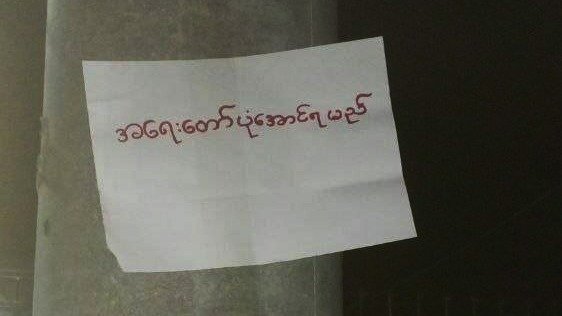 အရေးတော်ပုံအောင်ရမည်